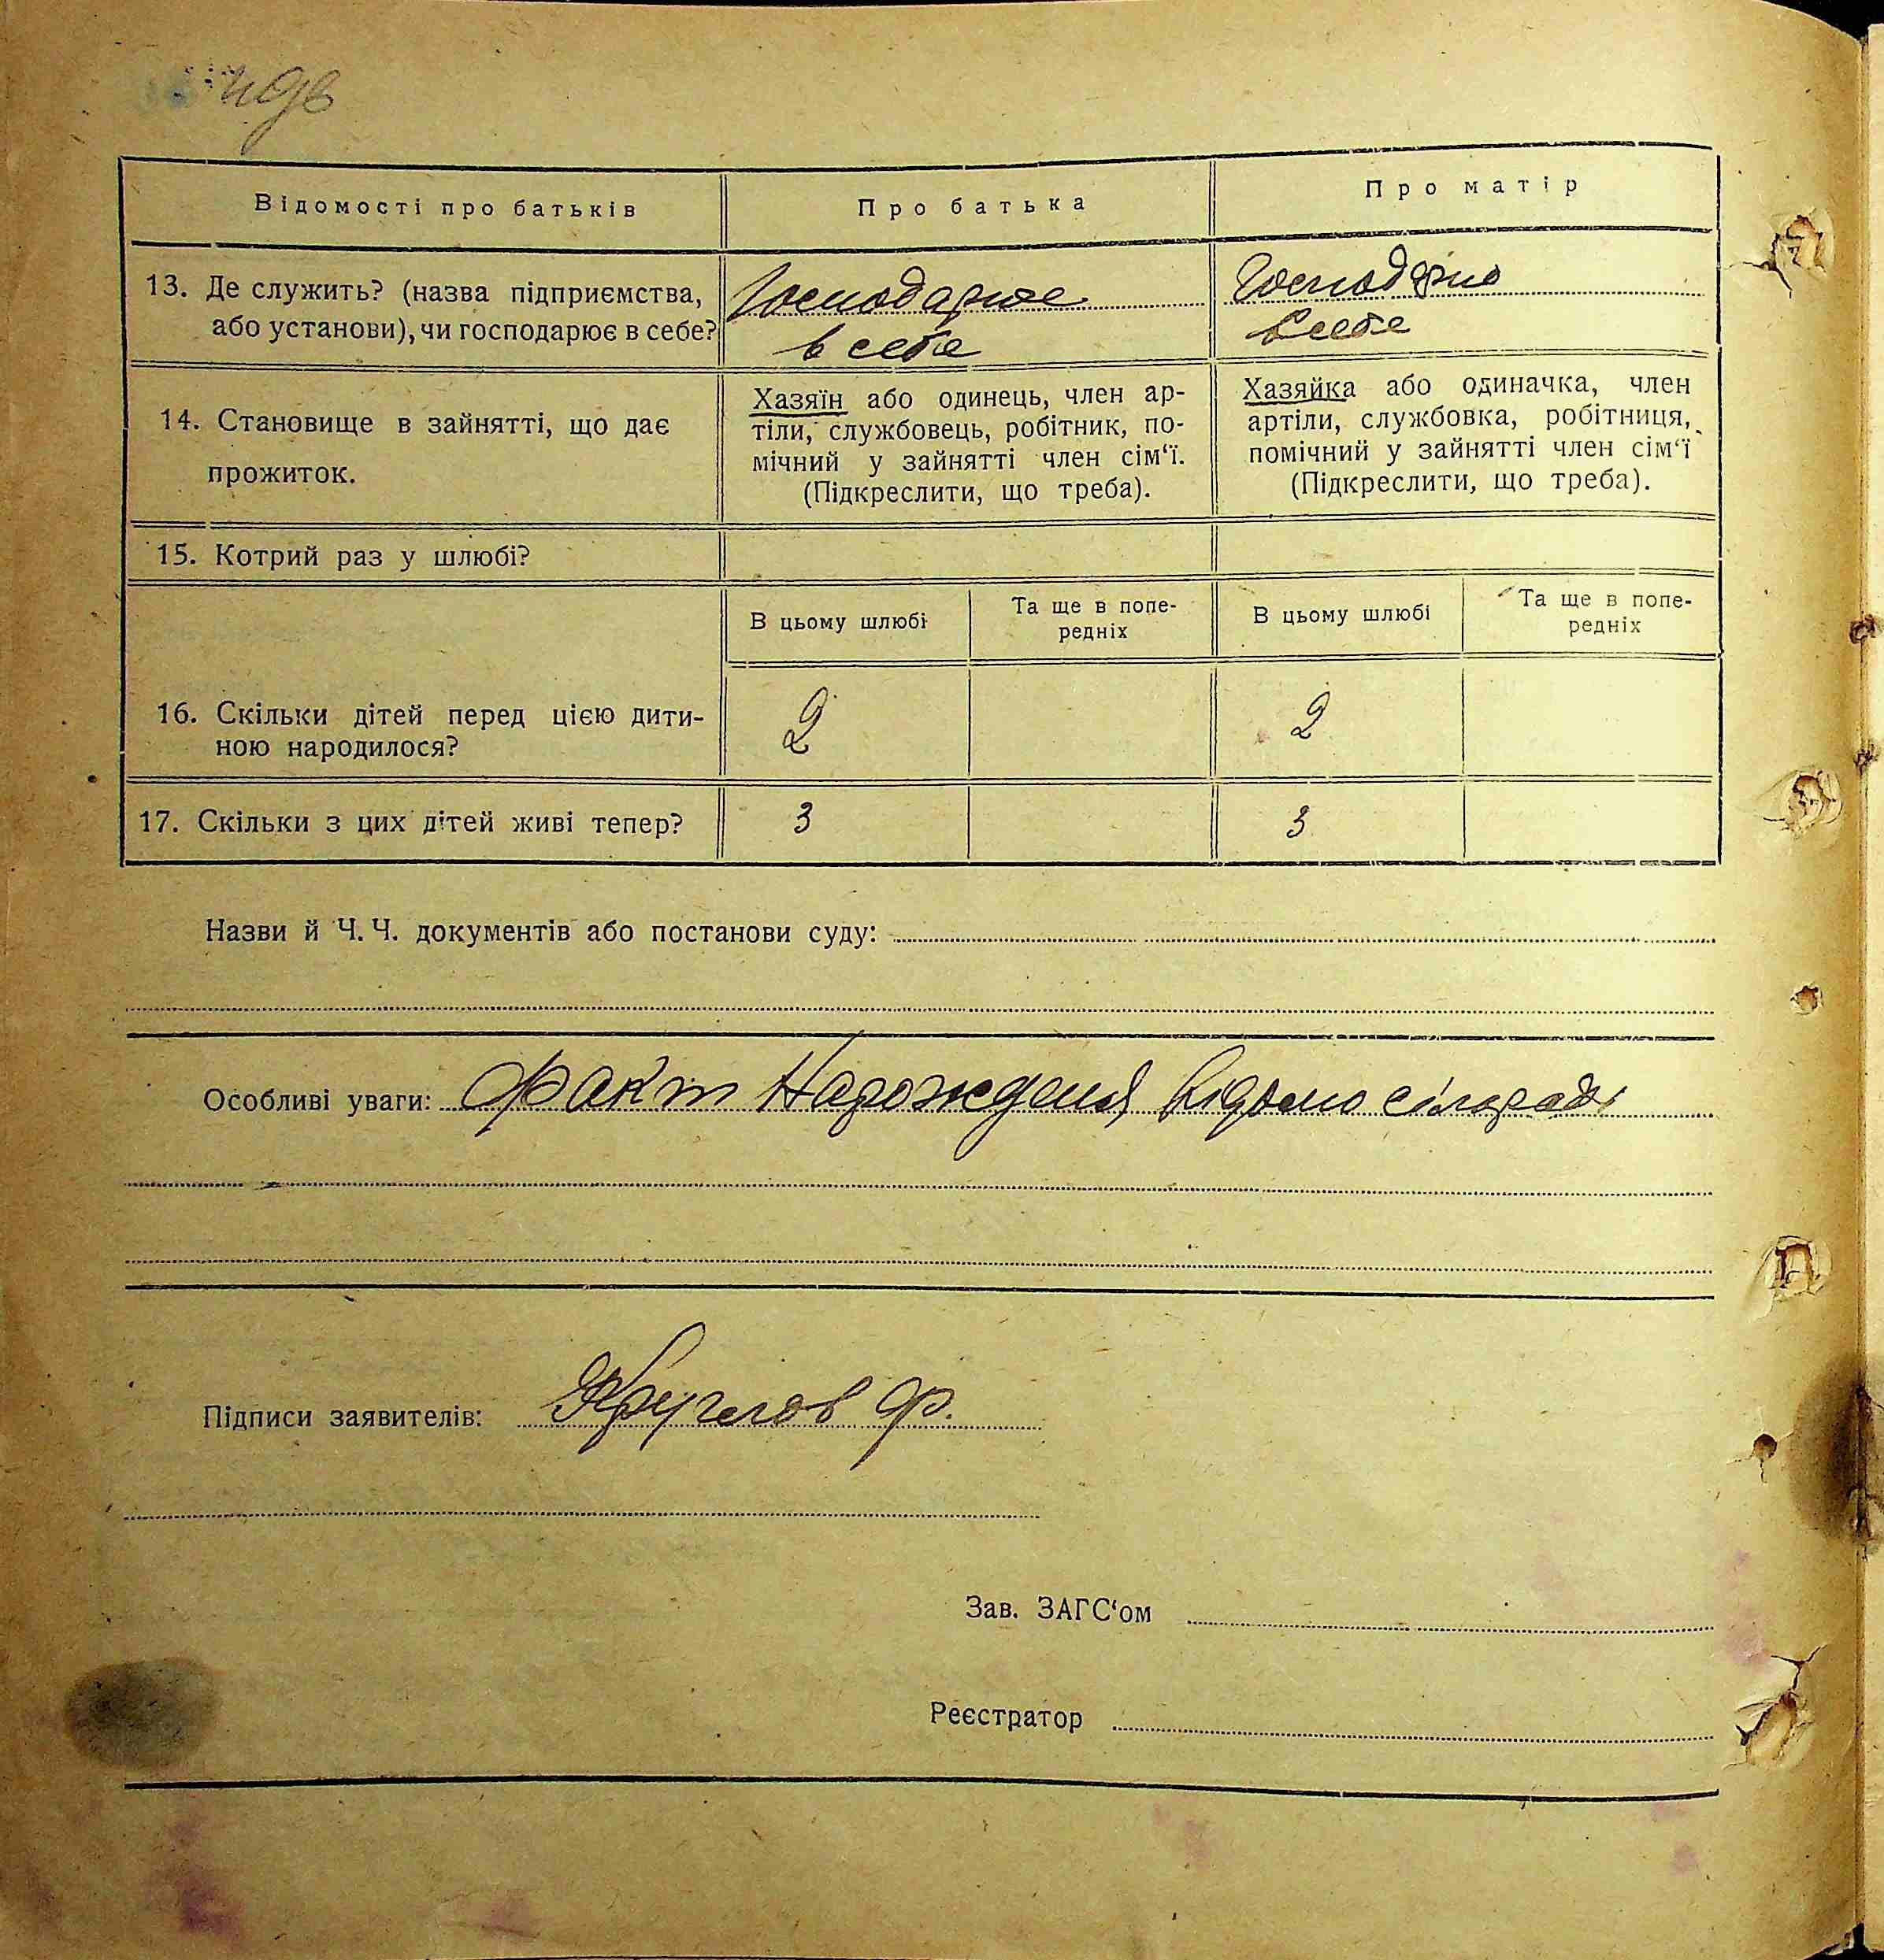 49в
Відомості про батьків Про батька Про матір
13. Де служить? (назва підприємства, або установи), чи господарює в себе?
Господарює
в себе
Господарює
в себе
14. Становище в зайнятті, що дає
прожиток.
Хазяїн або одинець, член ар-
тіли, службовець, робітник, по-
мічний у зайнятті член сім‘ї.
(Підкреслити, що треба).
Хазяйка або одиначка, член
артіли, службовка, робітниця,
помічний у зайнятті член сім‘ї
(Підкреслити, що треба).
15. Котрий раз у шлюбі?
В цьому шлюбі
Та ще в попе-
редніх
В цьому шлюбі
Та ще в попе-
редніх
16. Скільки дітей перед цією дити-
ною народилося?
2 2
17. Скільки з цих дітей живі тепер? 3 3
Назви й Ч. Ч. документів або постанови суду:
Особливі уваги: Факт Нарождения відомо сільраді
Підписи заявителів: Круглов Ф.
Зав. ЗАГС‘ом
Реєстратор